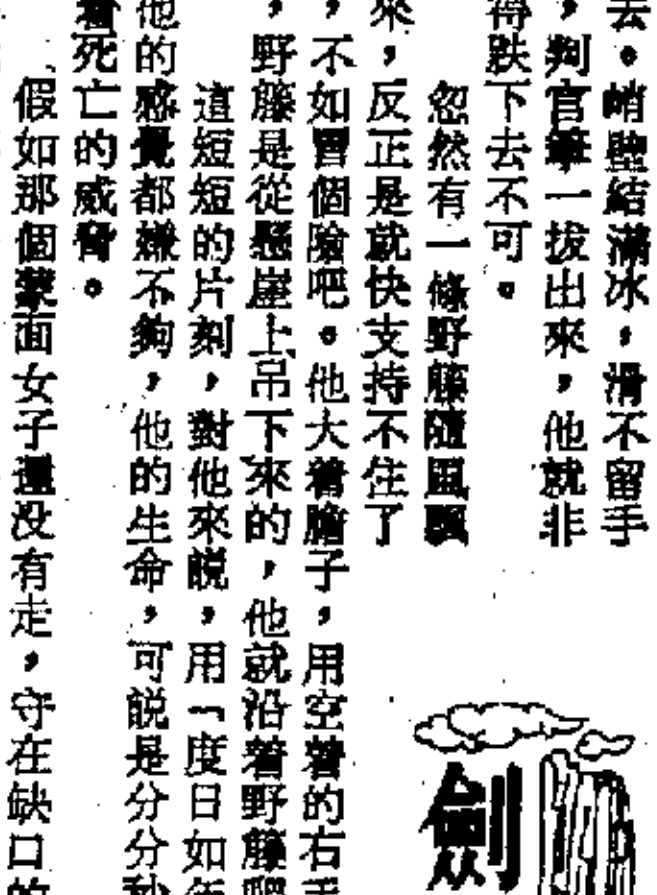 去。峭壁結滿冰，滑不留手
，判官筆一拔出來，他就非
得跌下去不可。
忽然有一條野籐隨風飄
來，反正是就快支持不住了
，不如冒個險吧。他大着膽子，用空着的右手
，野籐是從懸崖上吊下來的，他就沿着野籐
這短短的片刻，對他來說，用「度日如年
他的感覺都嫌不夠，他的生命，可說是分分秒
着死亡的威脅。
假如那個蒙面女子還没有走，守在缺口的
劍